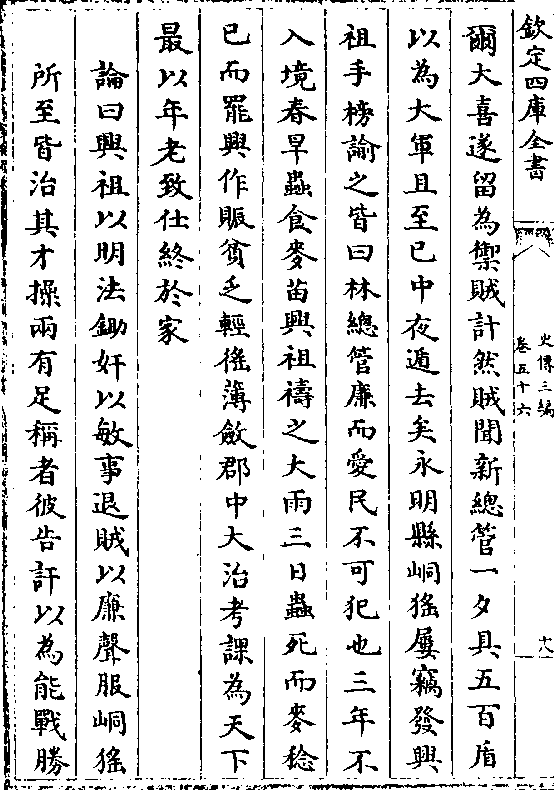 欽定四庫全書
史傳三編
卷五十六
十八
爾大喜遂留為禦賊計然賊聞新總管一夕具五百盾
以為大軍且至已中夜遁去矣永明縣峒猺屢竊發興
祖手榜諭之皆曰林總管廉而愛民不可犯也三年不
入境春旱蟲食麥苗興祖禱之大雨三日蟲死而麥稔
已而罷興作賑貧乏輕徭薄斂郡中大治考課為天下
最以年老致仕終於家
論曰興祖以明法鋤奸以敏事退賊以廉聲服峒猺
所至皆治其才操兩有足稱者彼告訐以為能戰勝